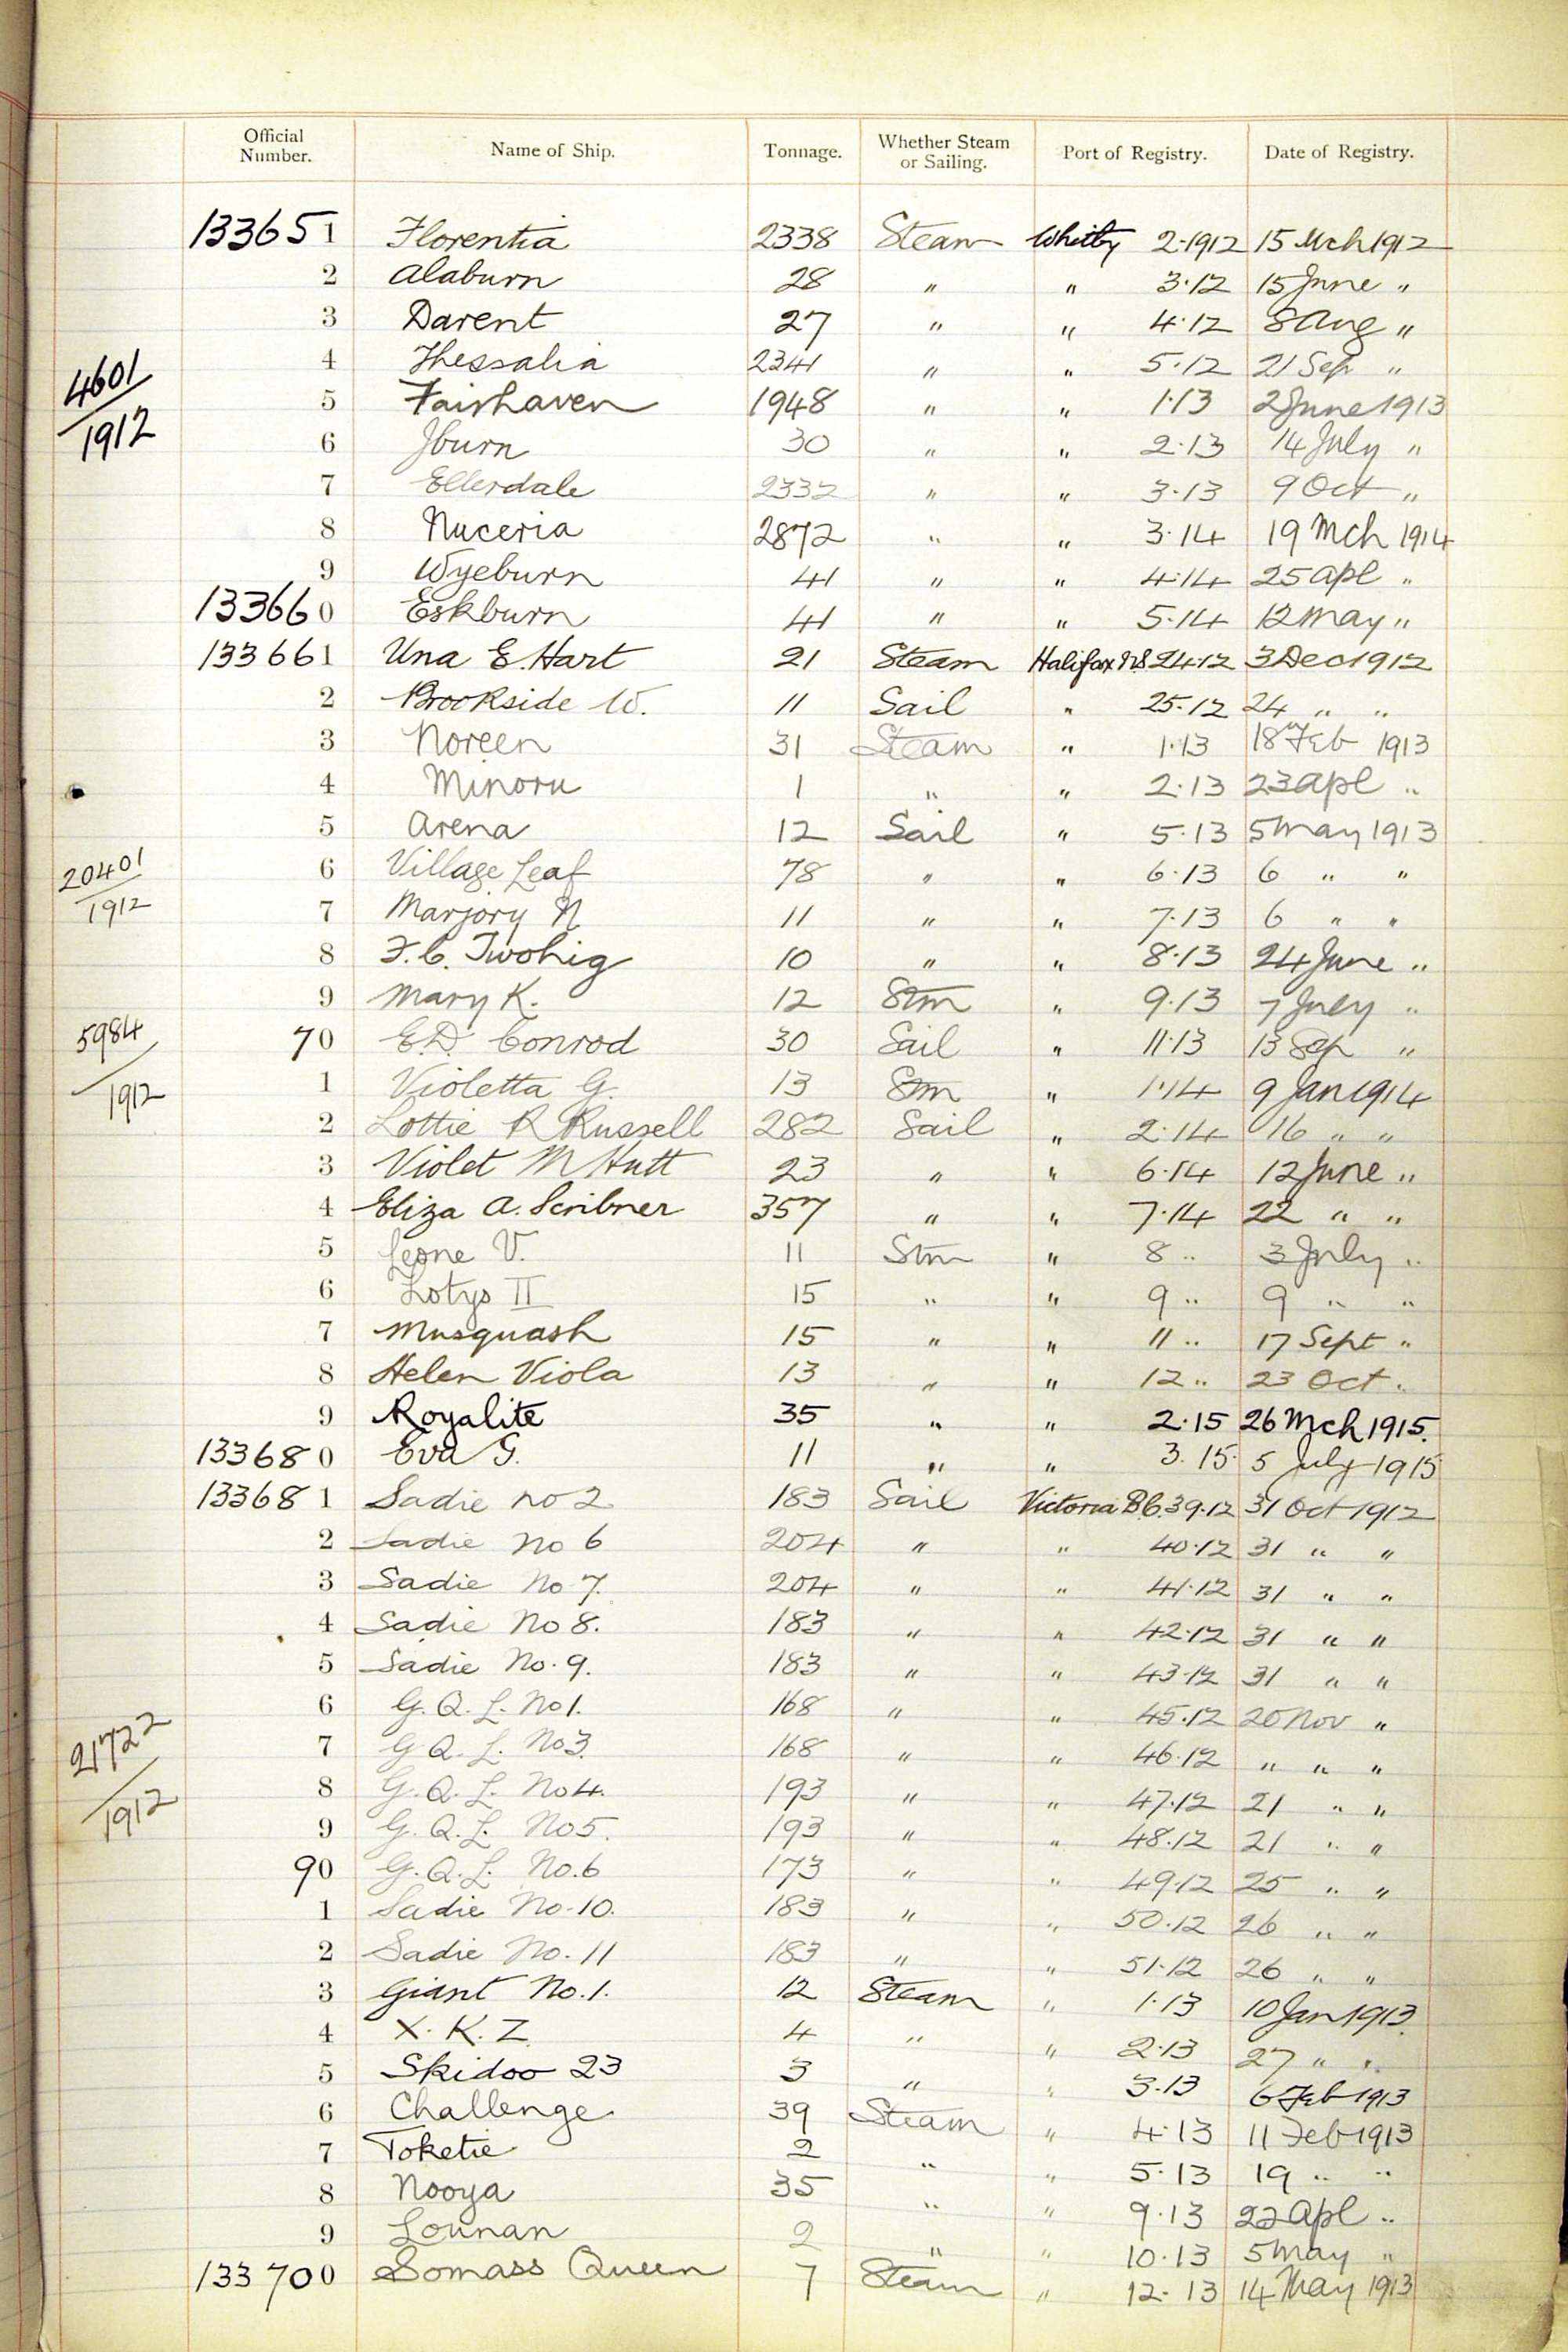 Official Number. Name of Ship. Tonnage. Whether Steam or Sailing. Port of Registry. Date of Registry.
133651 Florentia 2338 Steam Whitby 2·1912 15 Mch 1912
2 Alaburn 28 " " 3·12 15 June "
3 Darent 27 " " 4·12 8 Aug "
4 Thessalia 2341 " " 5·12 21 Sep "
4601/1912
5 Fairhaven 1948 " " 1·13 2 June 1913
6 Jburn 30 " " 2·13 14 July "
7 Ellerdale 2332 " " 3·13 9 Oct "
8 Nuceria 2872 " " 3·14 19 Mch 1914
9 Wyeburn 41 " " 4·14 25 Apl "
133660 Eskburn 41 " " 5·14 12 May "
133661 Una E. Hart 21 Steam Halifax NS 24·12 3 Dec 1912
2 Brookside W. 11 Sail " 25·12 24 " "
3 Noreen 31 Steam " 1·13 18 Feb 1913
4 Minoru 1 " " 2·13 23 Apl "
5 Arena 12 Sail " 5·13 5 May 1913
6 Village Leaf 78 " " 6·13 6 " "
20401/1912
7 Marjory N 11 " " 7·13 6 " "
8 F. C. Twohig 10 " " 8·13 24 June "
9 Mary K. 12 Stm " 9·13 7 July "
70 E.D. Conrod 30 Sail " 11·13 13 Sep "
5984/1912
1 Violetta G. 13 Stm " 1·14 9 Jan 1914
2 Lottie R Russell 282 Sail " 2·14 16 " "
3 Violet M Hutt 23 " " 6·14 12 June "
4 Eliza A. Scribner 357 " " 7·14 22 " "
5 Leone V. 11 Stm " 8 " 3 July "
6 Lotys II 15 " " 9 " 9 " "
7 Musquash 15 " " 11 " 17 Sept "
8 Helen Viola 13 " " 12 " 23 Oct "
9 Royalite 35 " " 2·15 26 Mch 1915.
133680 Eva G. 11 " " 3.15· 5 July 1915
133681 Sadie no 2 183 Sail Victoria B.C. 39·12 31 Oct 1912
2 Sadie No 6 204 " " 40·12 31 " "
3 Sadie No 7. 204 " " 41·12 31 " "
4 Sadie No 8. 183 " " 42·12 31 " "
5 Sadie No. 9. 183 " " 43·12 31 " "
6 G. Q. L. No 1. 168 " " 45·12 20 Nov "
7 G Q. L. No 3. 168 " " 46·12 " " "
21722/1912
8 G. Q. L. No 4. 193 " " 47·12 21 " "
9 G. Q. L. No 5. 193 " " 48·12 21 " "
90 G. Q. L. No. 6 173 " " 49·12 25 " "
1 Sadie No. 10. 183 " " 50·12 26 " "
2 Sadie No. 11 183 " " 51·12 26 " "
3 Giant No. 1. 12 Steam " 1·13 10 Jan 1913.
4 X. K. Z 4 " " 2·13 27 " "
5 Skidoo 23 3 " " 3·13 6 Feb 1913
6 Challenge 39 Steam " 4·13 11 Feb 1913
7 Toketie 2 " " 5·13 19 " "
8 Nooya 35 " " 9·13 22 Apl "
9 Lounan 2 " " 10·13 5 May "
133700 Somass Queen 7 Steam " 12·13 14 May 1913